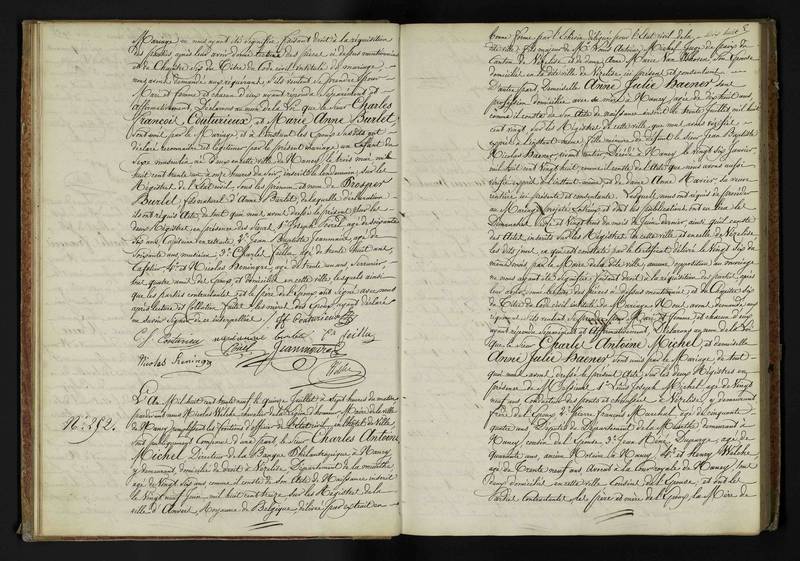 Mariage ne nous ayant été signifiée, faisant droit à la réquisition
des parties après leur avoir donné lecture des pièces ci dessus mentionnées
et du Chapitre Six du Titre du Code civil intitulé du mariage
nous avons demandé aux requérans s'ils veulent se prendre pour
Mari et femme et chacun d'eux ayant répondu séparément et
affirmativement, Déclarons au nom de la Loi que le Sieur Charles
François Couturieux et Marie Anne Burlet
sont unis par le Mariage et à l'instant les Epoux susdits ont
déclaré reconnaître et légitimer par le présent mariage un Enfant du
Sexe masculin né d'eux en cette ville de Nancy le trois mai mil
huit cent trente un à onze heures du soir, inscrit le lendemain sur les
Registres de l'Etat civil, sous les prénom et nom de Prosper
Burlet, fils naturel d'Anne Burlet de laquelle déclaration
ils ont requis Acte, de tout quoi nous avons dressé le présent Acte sur les
deux Registres en présence des Sieurs 1° Joseph
six ans, Capitaine en retraite, 2° Jean Baptiste Jeanmaire, âgé de
soixante ans, 3° Charles Feilla, âgé de trente huit ans,
Cafetier, 4° et Nicolas Béningre, âgé de trente un ans, Serrurier,
tous quatre amis des Epoux et domiciliés en cette ville, lesquels ainsi
que les parties contractantes et le frère de l'Epoux ont signé avec nous
après lecture et collation faites, les mères des Epoux ayant déclaré
ne savoir signer de ce interpellées.
Couturieux
C. F. Couturieux burlet Ch Feilla
Jeanmaire
Nicolas Beningre
Welche
N° 252.
L'An Mil huit cent trente neuf le quinze Juillet à sept heures du matin
pardevant nous Nicolas Welche, chevalier de la Légion d'honneur, Maire de la ville
de Nancy, remplissant les fonctions d'officier de l'Etat civil, en l'hôtel de Ville,
sont publiquement comparus d'une part, le Sieur Charles Antoine
Michel, Directeur de la Banque Philantropique à Nancy,
y demeurant, domicilié de droit à Vézelise, Département de la meurthe,
âgé de Vingt six ans comme il conste de son Acte de Naissance inscrit
le Vingt neuf Juin mil huit cent treize sur les Registres de la
ville d'Anvers, Royaume de Belgique, délivré par extrait en
bonne forme par l'Echevin délégué pour l'Etat civil de la
dite ville, fils majeur de Mr Louis Antoine Michel Juge de paix du
Canton de Vézelise, et de dame Anne Marie Van
domiciliés en la dite ville de Vézelise ici présens et consentans
d'autre part Demoiselle Anne Julie Haener sans
profession, domiciliée avec sa mère à Nancy, âgée de dix huit ans,
comme il conste de son Acte de Naissance inscrit le trente Juillet mil huit
cent vingt sur les Registres de cette ville que nous avons vérifié
à l'instant même, fille mineure de défunt le Sieur Jean Baptiste
Nicolas Haener, vivant rentier, Décédé à Nancy le vingt six Janvier
mil huit cent vingt huit, comme il conste de l'Acte que nous avons aussi
vérifié à l'instant même, et de dame Anne Marier sa veuve
rentière ici présente et consentante. Lesquels nous ont requis de procéder
au Mariage projeté entr'eux et dont les publications ont eu lieu les
Dimanches Vingt trois et trente du mois de Juin dernier ainsi qu'il conste
des Actes inscrits sur les Registres de cette ville et en celle de Vézelise
les dits jours, ce qui est constaté par le certificat délivré le Vingt six du
même mois par le Maire de la dite ville, aucune opposition au mariage
ne nous ayant été signifiée, faisant droit à la réquisition des parties, après
leur avoir donné lecture des pièces ci dessus mentionnées et du Chapitre Six
du Titre du Code civil intitulé du Mariage, Nous avons demandé aux
requérans s'ils veulent se prendre pour Mari et femme et chacun d'eux
ayant répondu séparément et affirmativement, Déclarons au nom de la Loi
que le Sieur Charles Antoine Michel et demoiselle
Anne Julie Haener sont unis par le Mariage de tout
quoi nous avons dressé le présent Acte sur les deux Registres en
présence de Messieurs 1° Louis Joseph Michel, âgé de Vingt
neuf ans, Conducteur des ponts et chaussées à Vézelise, y demeurant,
frère de l'Epoux, 2° Pierre François Marchal, âgé de cinquante
quatre ans, Député du Département de la Meurthe demeurant à
Nancy, cousin de l'Epouse, 3° Jean Rémi Duparge, âgé de
quarante ans, ancien Notaire à Nancy, 4° et Henry Welche,
âgé de trente neuf ans, Avocat à la Cour royale de Nancy, tous
deux domiciliés en cette ville Cousins de l'Epouse, et ont les
Parties Contractantes, les père et mère de l'Epoux, la Mère de